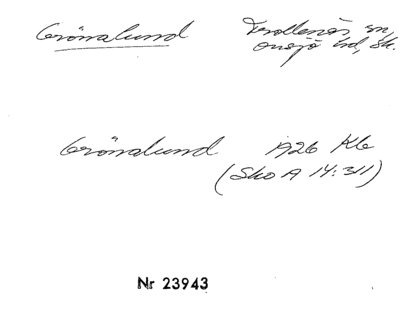 Grönalund Trollenäs sn,
Onsjö hd, Sk.
Grönalund 1926 Kb
(Sko A 14:311)
Nr 23943